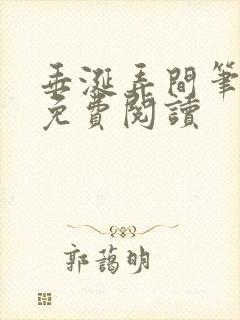 垂涎弄間筆
免費閱讀
郭藹明